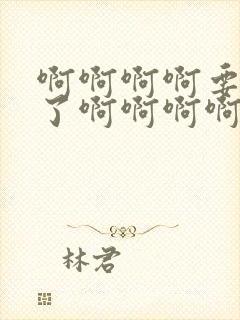 啊啊啊啊要
了啊啊啊啊
林君